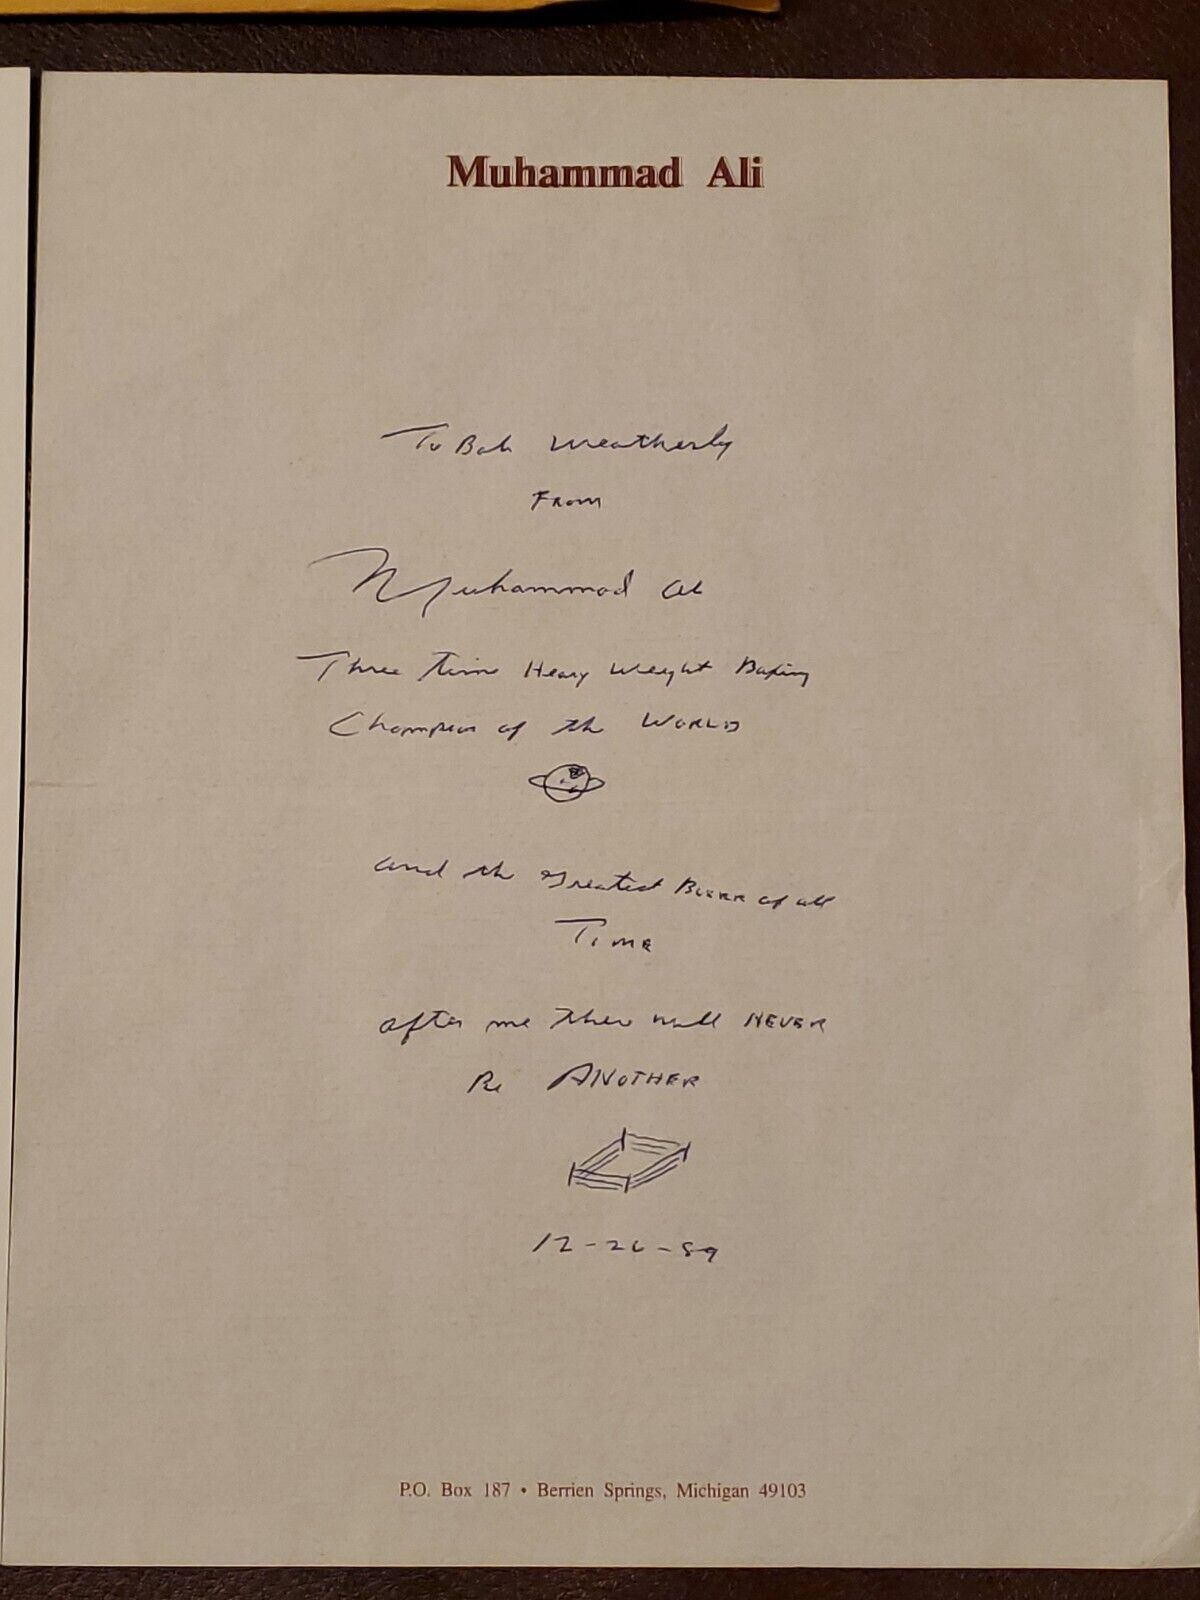 Muhammad Ali
To Bob Weatherly
From
Muhammad Ali
Three time Heavy Weight Boxing
Champion of the WORLD
and the Greatest Boxer of all
Time
after me there will NEVER
Be ANOTHER
12-26-89
P.O. Box 187 • Berrien Springs, Michigan 49103